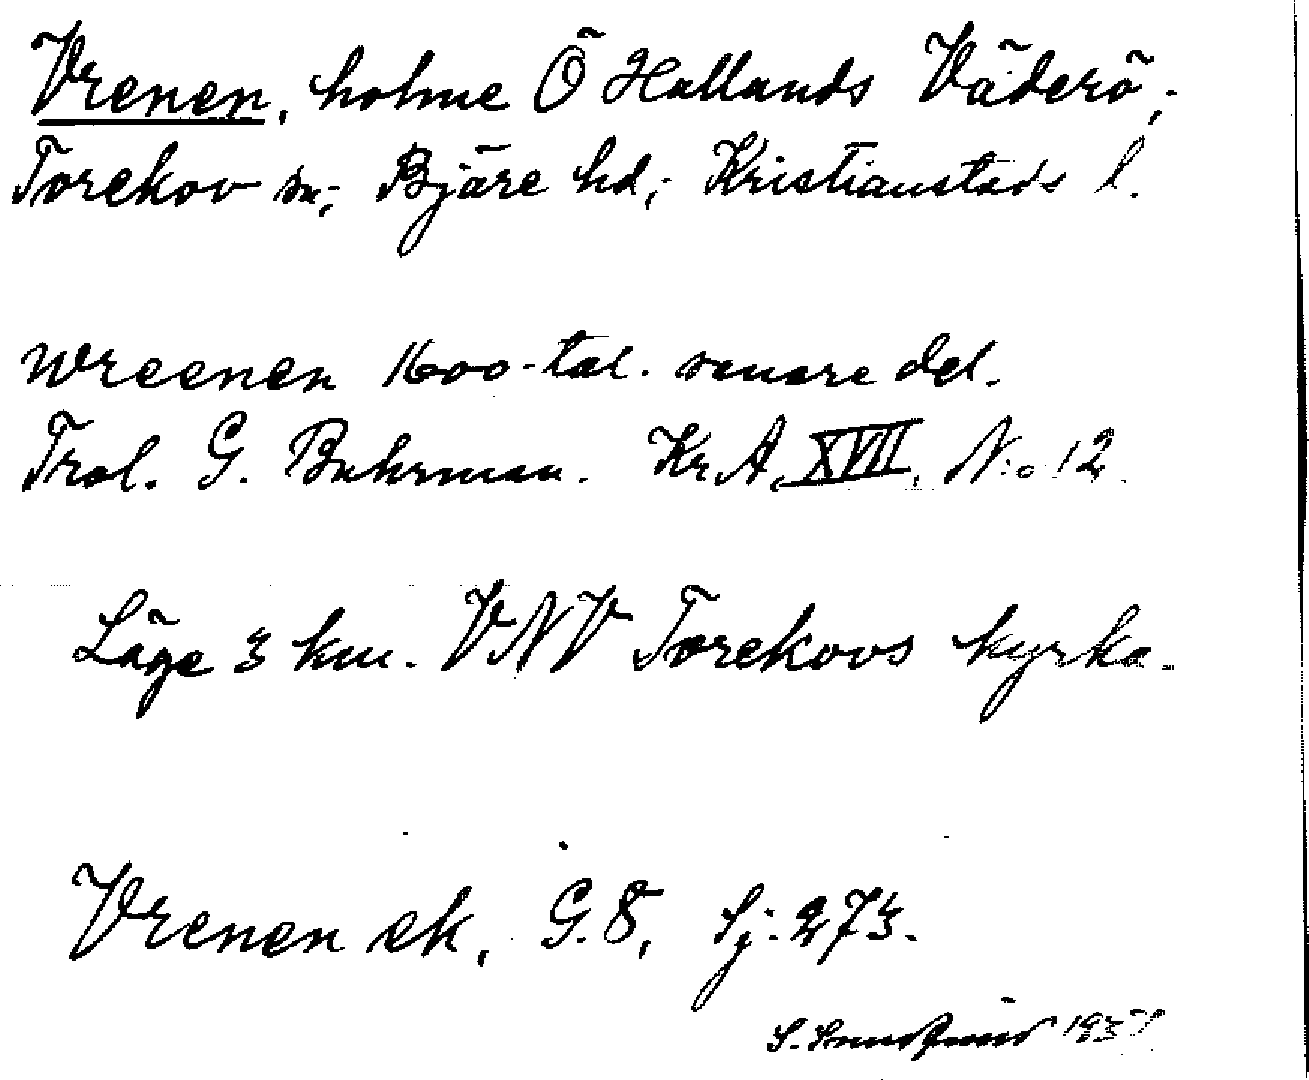 Vrenen, holme Ö Hallands Väderö,
Torekov sn, Bjäre hd, Kristianstads l.
Wreenen 1600-tal. senare del.
Trol. G. Buhrman. Kr A, XVII, N:o 12.
Läge 3 km. VNV Torekovs kyrka.
Vrenen ek, G.8, Sj. 273.
S. 193